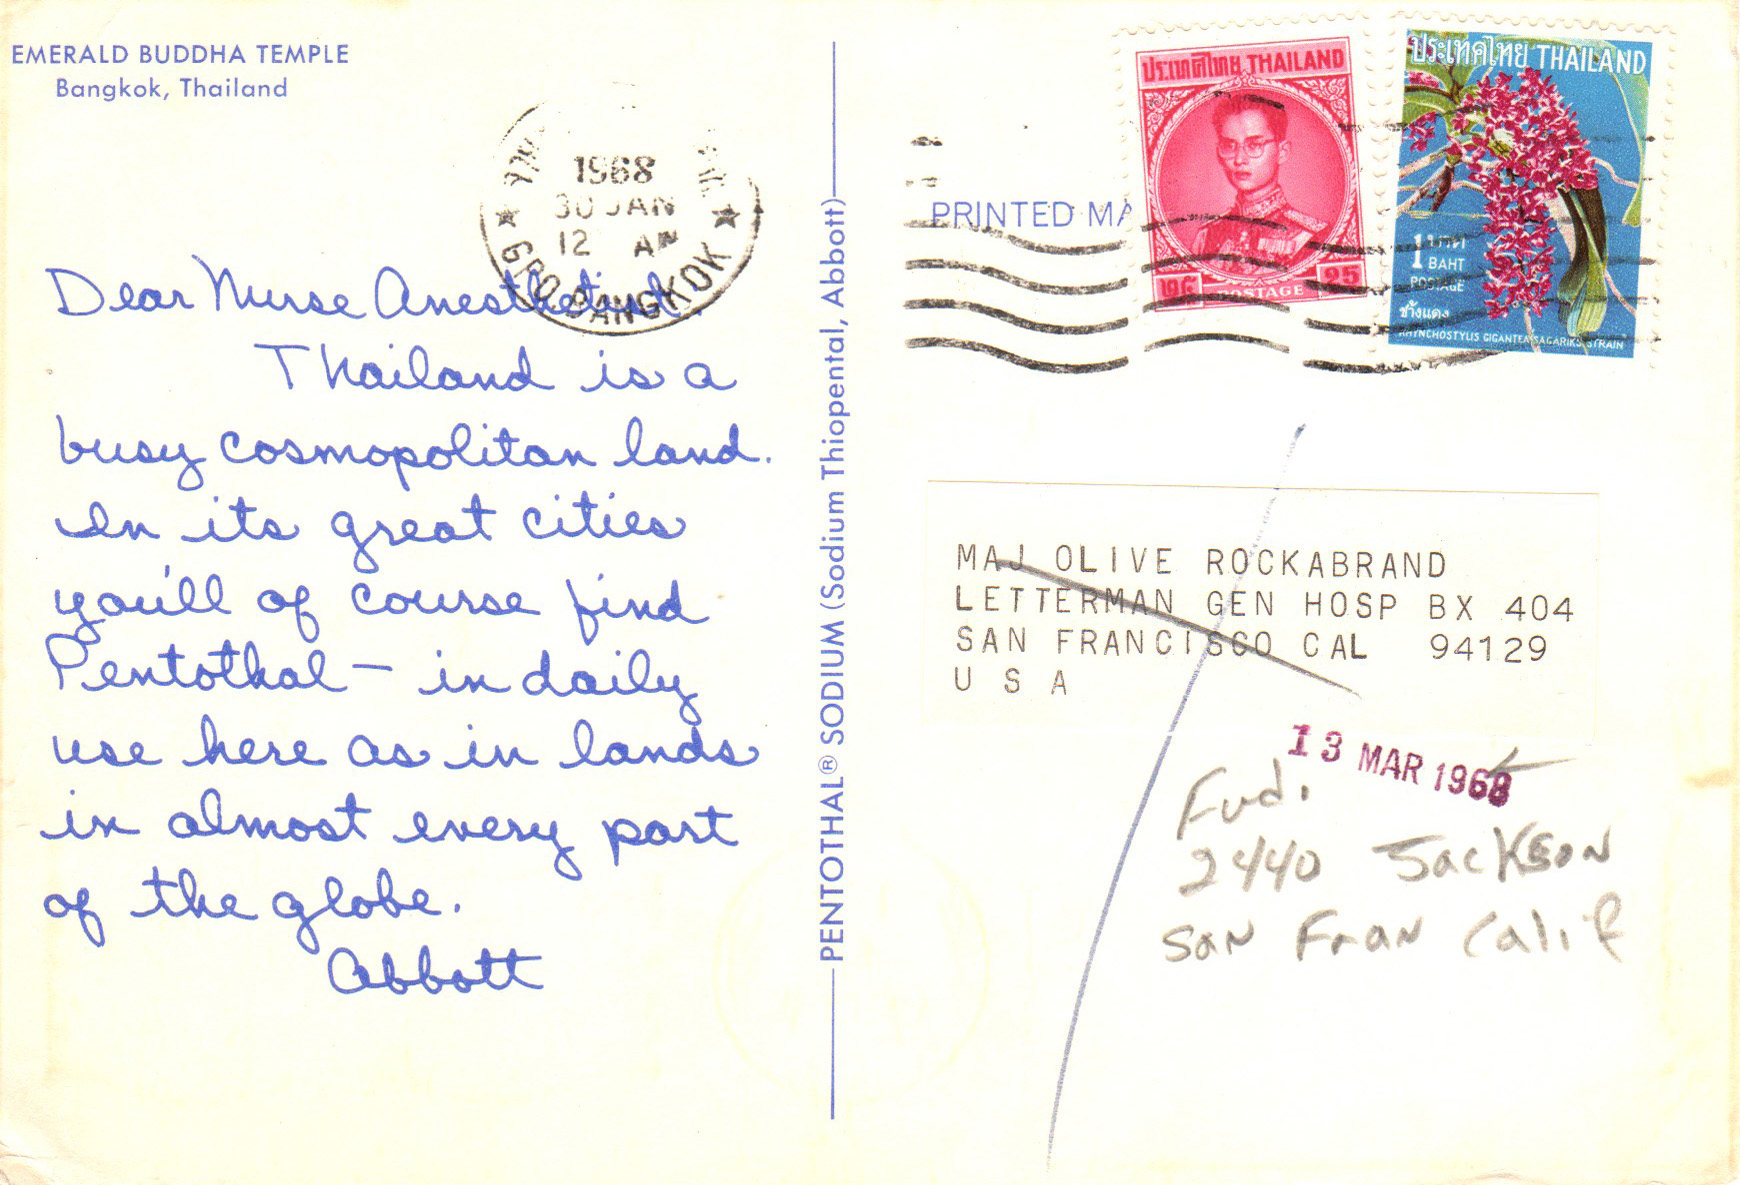 EMERALD BUDDHA TEMPLE
Bangkok, Thailand
1968
30 JAN
12 AM
GPO BANGKOK
Dear Nurse Anesthetist
Thailand is a
busy cosmopolitan land.
In its great cities
you'll of course find
Pentothal — in daily
use here as in lands
in almost every part
of the globe.
Abbott
PENTOTHAL® SODIUM (Sodium Thiopental, Abbott)
PRINTED MA
ประเทศไทย THAILAND
๒๕ POSTAGE 25
ประเทศไทย THAILAND
1 บาท
BAHT
POSTAGE
ช้างแดง
RHYNCHOSTYLIS GIGANTEA SAGARIKS STRAIN
MAJ OLIVE ROCKABRAND
LETTERMAN GEN HOSP BX 404
SAN FRANCISCO CAL 94129
U S A
13 MAR 1968
Fwd.
2440 Jackson
San Fran Calif